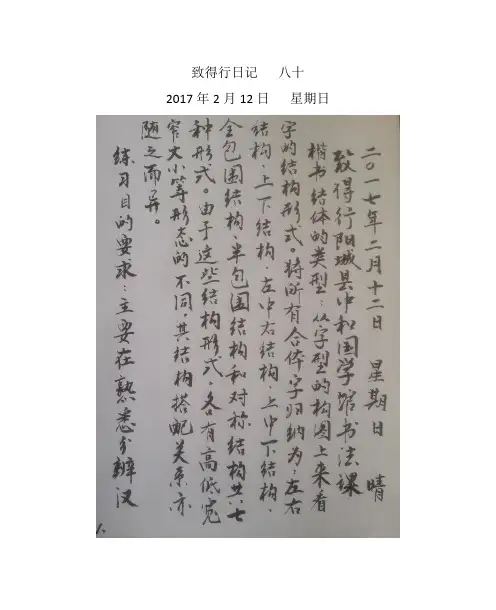 致得行日记 八十
2017年2月12日 星期日
二〇一七年二月十二日 星期日 晴
致得行阳城县中和国学馆书法课
楷书结体的类型：从字型的构图上来看
字的结构形式。将所有合体字归纳为：左右
结构、上下结构、左中右结构、上中下结构、
全包围结构、半包围结构和对称结构共七
种形式。由于这些结构形式，各有高低宽
窄大小等形态的不同，其结构搭配关系亦
随之而异。
练习目的要求：主要在熟悉分辨汉
1.